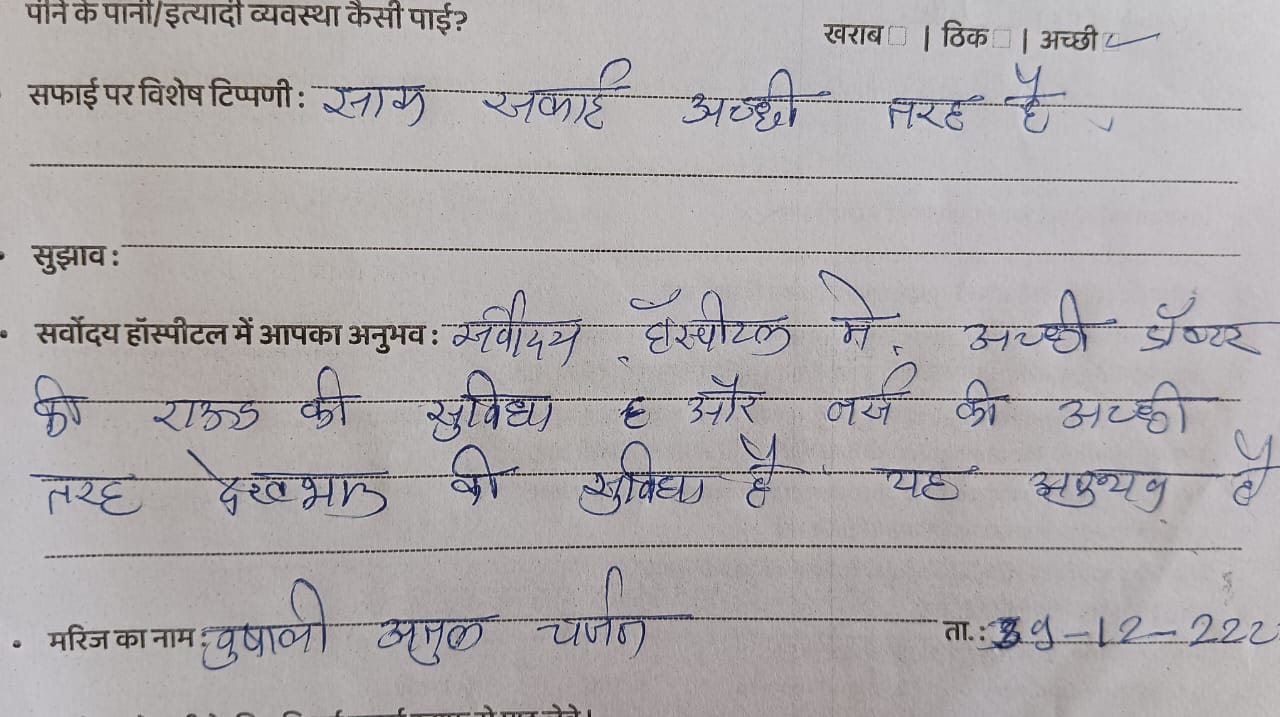 पीने के पानी/इत्यादी व्यवस्था कैसी पाई?
खराब □ | ठिक □ | अच्छी ✓
सफाई पर विशेष टिप्पणी : साफ सफाई अच्छी तरह है
सुझाव :
• सर्वोदय हॉस्पीटल में आपका अनुभव : सर्वोदय हॉस्पीटल मे. अच्छी डॉक्टर
की राऊंड की सुविधा है और नर्स की अच्छी
तरह देखभाल की सुविधा है यह अनुभव है
• मरिज का नाम : वृषाली अतुल चर्जन ता.: 31-12-222